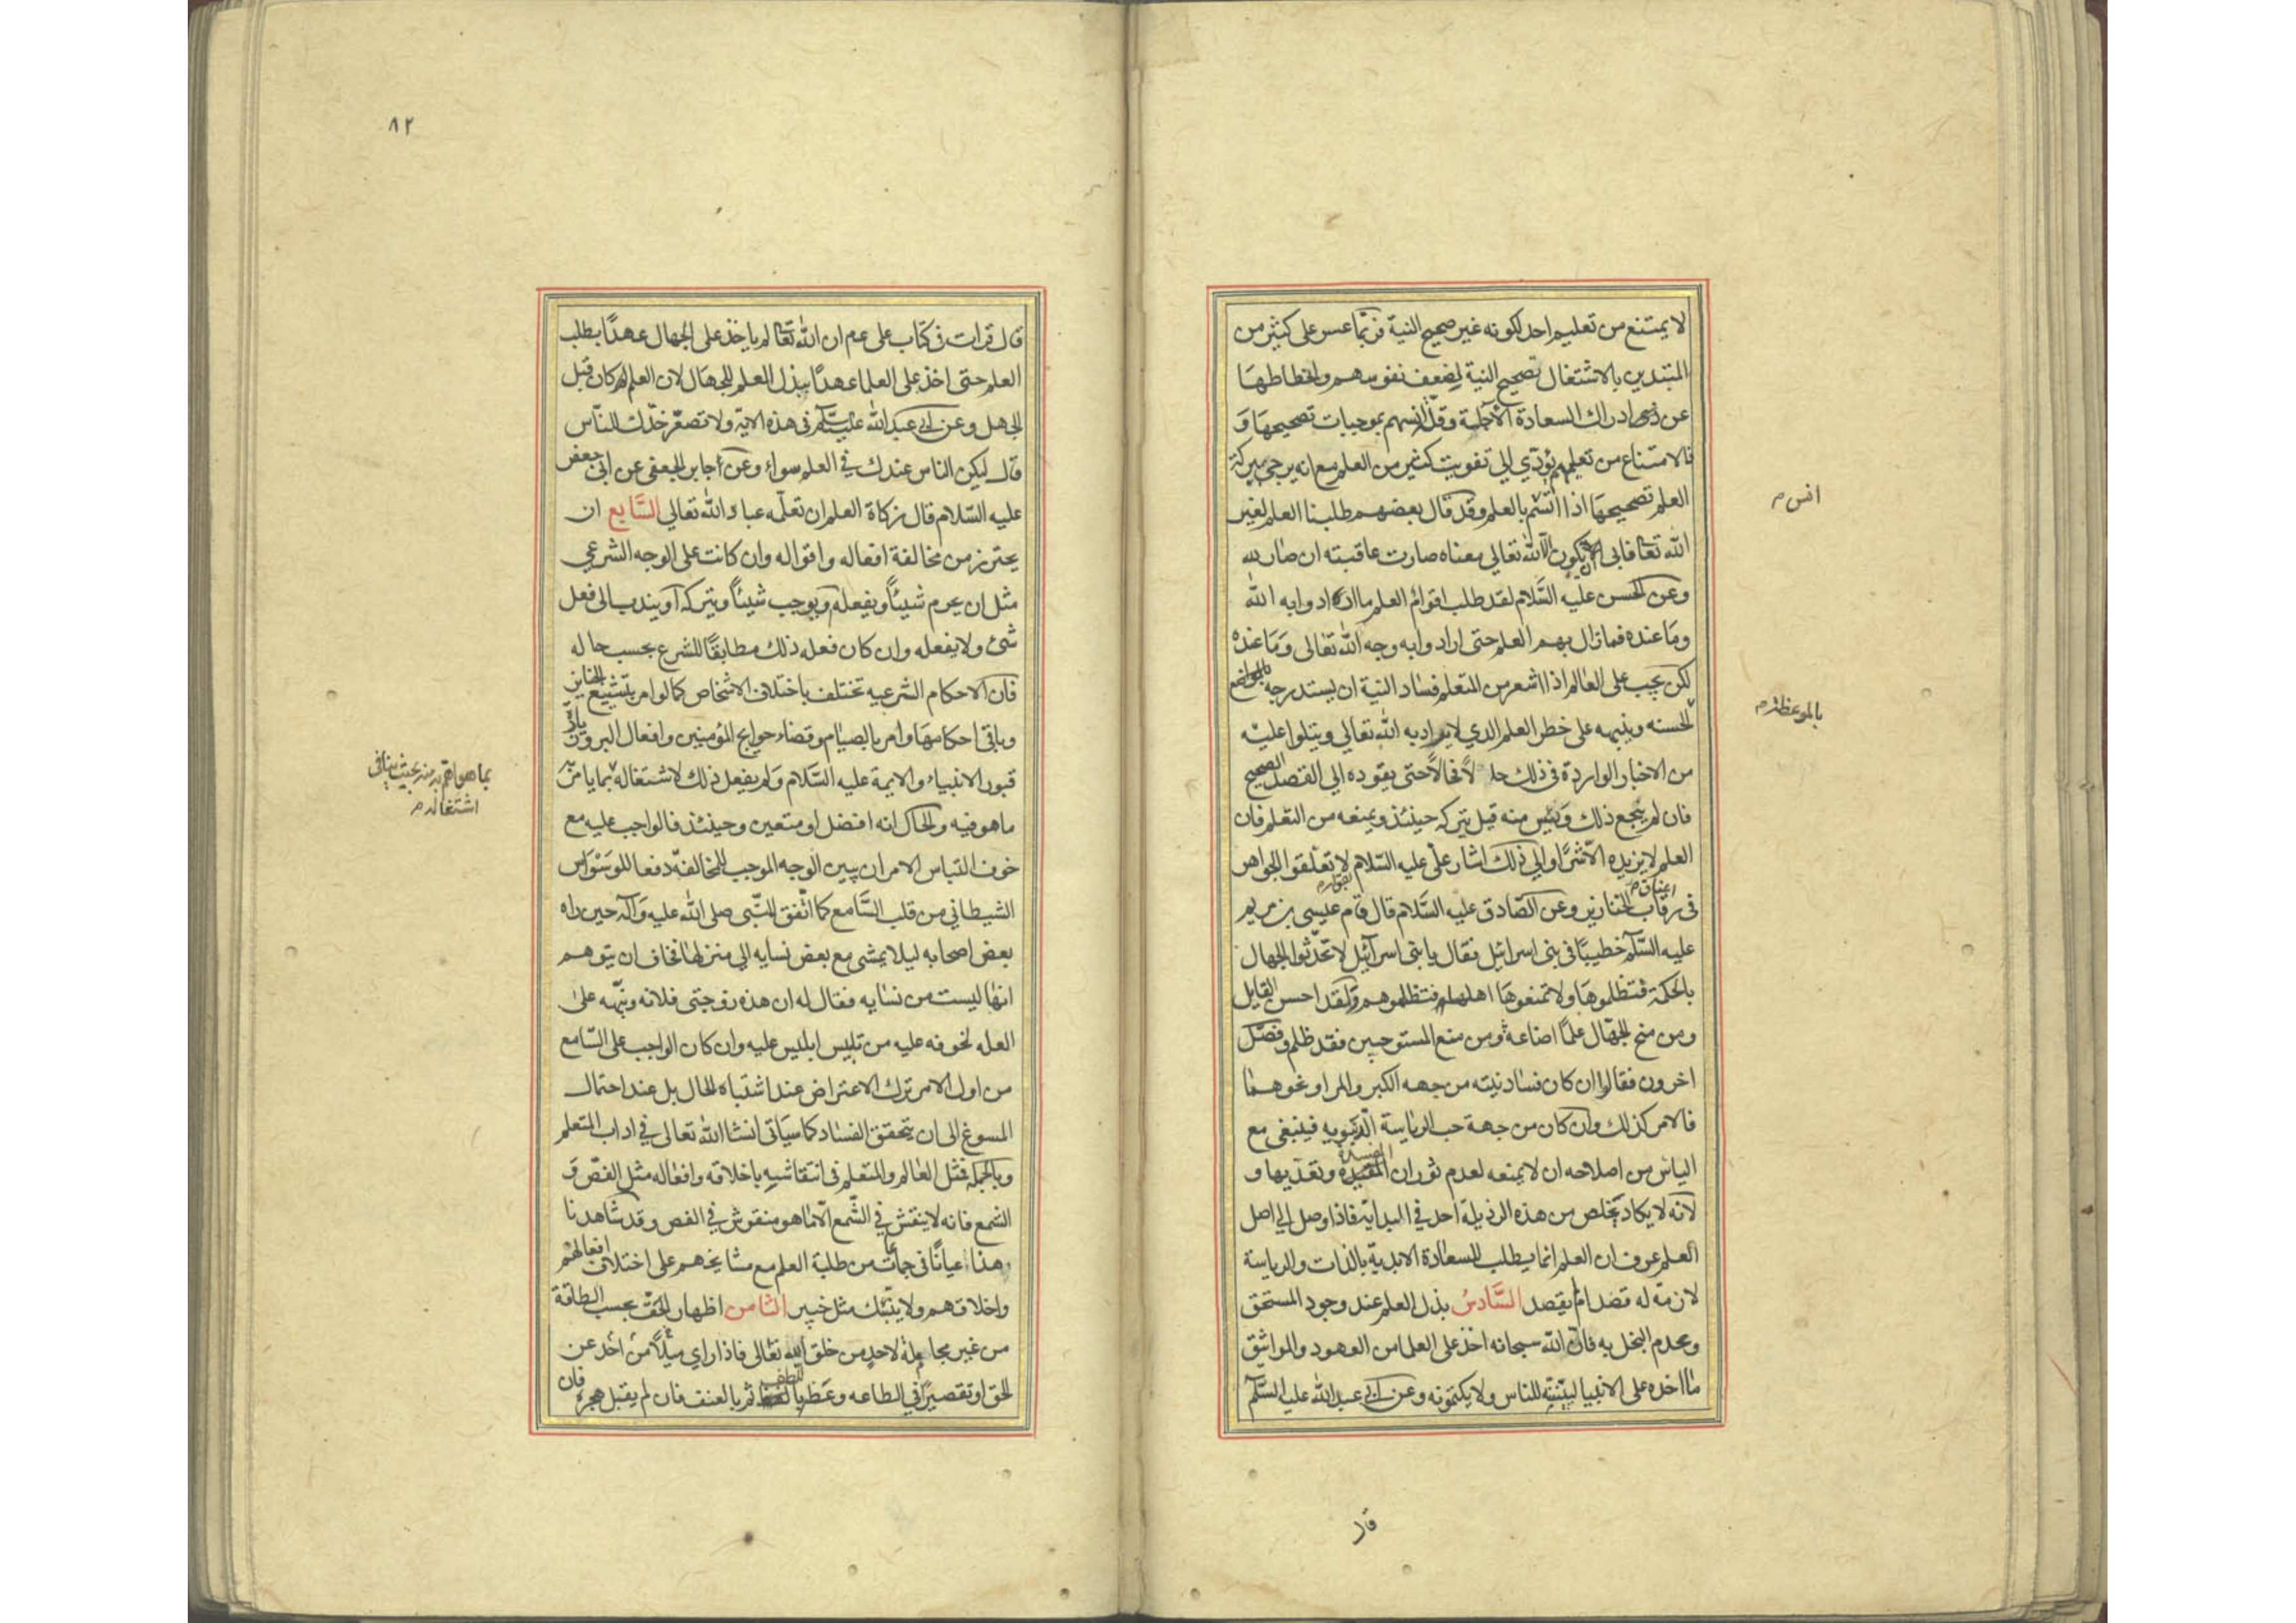 لا يمتنع من تعليم احد لكونه غير صحيح النية فربما عسر على كثير من
المبتدين بالاشتغال تصحيح النية لضعف نفوسهم وانحطاطها
عن ادراك السعادة الآجلة وقلة انسهم بموجبات تصحيحها و
فالامتناع من تعليمهم يؤدي الى تفويت كثير من العلم مع انه يرجى ببركة
العلم تصحيحها اذا انس بالعلم وقد قال بعضهم طلبنا العلم لغير
الله تعالى فابى ان يكون الا لله تعالى معناه صارت عاقبته ان صار لله
وعن الحسن عليه السلام لقد طلب اقوام العلم ما ارادوا به الله
وما عنده فما زال بهم العلم حتى ارادوا به وجه الله تعالى وما عنده
لكن يجب على العالم اذا اشعر من المتعلم فساد النية ان يستدرجه بالمواضع
الحسنه وينبهه على خطر العلم الذي لا يراد به الله تعالى ويتلوا عليه
من الاخبار الواردة في ذلك حالا فحالا حتى يقوده الى القصد الصحيح
فان لم ينجع ذلك ويئس منه قيل يتركه حينئذ ويمنعه من التعلم فان
العلم لا يزيده الا شرا والى ذلك اشار علي عليه السلام لا تعلقوا الجواهر
في رقاب الخنازير وعن الصادق عليه السلام قال قام عيسى بن مريم
عليه السلم خطيبا في بني اسرائيل فقال يا بني اسرآئيل لا تحدثوا الجهال
بالحكمة فتظلموها ولا تمنعوها اهلها فتظلموهم ولقد احسن القايل
ومن منح الجهال علما اضاعه ومن منع المستوجبين فقد ظلم وفصل
اخرون فقالوا ان كان فساد نيته من جهه الكبر والمرا ونحوهما
فالامر كذلك وان كان من جهة حب الرياسة الدنيويه فينبغي مع
الياس من اصلاحه ان لا يمنعه لعدم ثوران المفسدة وتعديها و
لانه لا يكاد يتخلص من هذه الرذيلة احد في البداية فاذا وصل الى اصل
العلم عرف ان العلم انما يطلب للسعادة الابدية بالذات والرياسة
لازمة له قصد ام لم يقصد السادس بذل العلم عند وجود المستحق
وعدم البخل به فان الله سبحانه اخذ على العلما من العهود والمواثيق
ما اخذه على الانبيا ليبيننه للناس ولا يكتمونه وعن ابي عبد الله عليه السلم
انس م
بالموعظة م
قال
٨٢
قال قرات في كتاب علي عم ان الله تعالى لم ياخذ على الجهال عهدا بطلب
العلم حتى اخذ على العلما عهدا ببذل العلم للجهال لان العلم كان قبل
الجهل وعن ابي عبد الله عليه السلم في هذه الاية ولا تصعر خدك للناس
قال ليكن الناس عندك في العلم سواء وعن جابر الجعفي عن ابي جعفر
عليه السلام قال زكاة العلم ان تعلمه عباد الله تعالى السابع ان
يحترز من مخالفة افعاله واقواله وان كانت على الوجه الشرعي
مثل ان يحرم شيئا ويفعله ويوجب شيئا ويتركه او يندب الى فعل
شئ ولا يفعله وان كان فعله ذلك مطابقا للشرع بحسب حاله
فان الاحكام الشرعيه تختلف باختلاف الاشخاص كما لو امر بتشييع الجنايز
وباقي احكامها وامر بالصيام وقضاء حوايج المؤمنين وافعال البر وزيارة
قبور الانبياء والايمة عليه السلام ولم يفعل ذلك لاشتغاله بما
ما هو فيه والحال انه افضل او متعين وحينئذ فالواجب عليه مع
خوف التباس الامر ان يبين الوجه الموجب للمخالفة دفعا للوسواس
الشيطاني من قلب السامع كما اتفق للنبي صلى الله عليه وآله حين راه
بعض اصحابه ليلا يمشي مع بعض نسايه الى منزلها فخاف ان يتوهم
انها ليست من نسايه فقال له ان هذه زوجتي فلانه ونبهه على
العله لخوفه عليه من تلبيس ابليس عليه وان كان الواجب على السامع
من اول الامر ترك الاعتراض عند اشتباه الحال بل عند احتمال
المسوغ الى ان يتحقق الفساد كما سياتي انشا الله تعالى في اداب المتعلم
وبالجملة فمثل العالم والمتعلم في انتقاشه باخلاقه وافعاله مثل الفص و
الشمع فانه لا ينقش في الشمع الا ما هو منقوش في الفص وقد شاهدنا
هذا عيانا في جماعات من طلبة العلم مع مشايخهم على اختلاف افعالهم
واخلاقهم ولا ينبئك مثل خبير الثامن اظهار الحق بحسب الطاقة
من غير مجاملة لاحد من خلق الله تعالى فاذا راى ميلا من احد عن
الحق او تقصيرا في الطاعه وعظه باللطف ثم بالعنف فان لم يقبل هجره فان
بما هو اهم منه بحيث ينافي
اشتغاله م